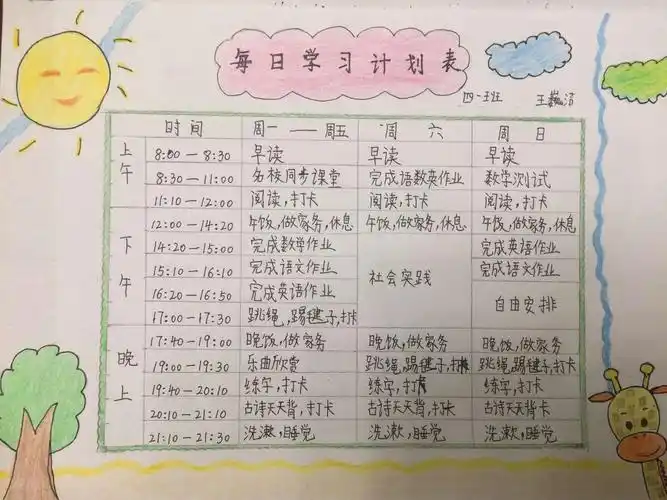 每日学习计划表
四一班 王巍洁
时间 周一——周五 周六 周日
上午
8:00—8:30 早读 早读 早读
8:30—11:00 名校同步课堂 完成语数英作业 数学测试
11:10—12:00 阅读,打卡 阅读,打卡 阅读,打卡
下午
12:00—14:20 午饭,做家务,休息 午饭,做家务,休息 午饭,做家务,休息
14:20—15:00 完成数学作业 社会实践 完成英语作业
15:10—16:10 完成语文作业 完成语文作业
16:20—16:50 完成英语作业 自由安排
17:00—17:30 跳绳,踢毽子,打卡
晚上
17:40—19:00 晚饭,做家务 晚饭,做家务 晚饭,做家务
19:00—19:30 乐曲欣赏 跳绳,踢毽子,打卡 跳绳,踢毽子,打卡
19:40—20:10 练字,打卡 练字,打卡 练字,打卡
20:10—21:10 古诗天天背,打卡 古诗天天背,打卡 古诗天天背卡
21:10—21:30 洗漱,睡觉 洗漱,睡觉 洗漱,睡觉